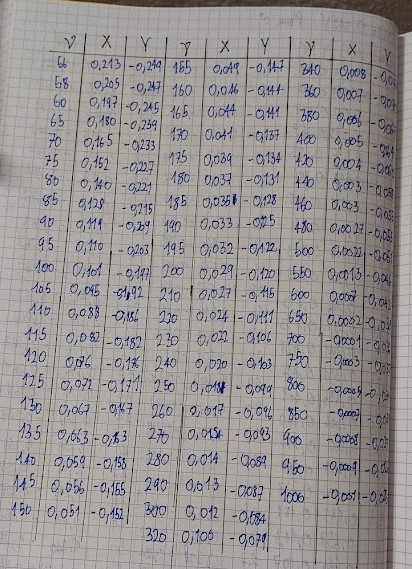 ν X Y ν X Y ν X Y
56 0,213 -0,249 155 0,049 -0,147 340 0,008
58 0,205 -0,247 160 0,046 -0,144 360 0,007
60 0,197 -0,245 165 0,044 -0,141 380 0,006
65 0,180 -0,239 170 0,041 -0,137 400 0,005
70 0,165 -0,233 175 0,039 -0,134 420 0,004
75 0,152 -0,227 180 0,037 -0,131 440 0,003
80 0,140 -0,221 185 0,035 -0,128 460 0,003
85 0,128 -0,215 190 0,033 -0,125 480 0,0027
90 0,119 -0,209 195 0,032 -0,122 500 0,0022
95 0,110 -0,203 200 0,029 -0,120 550 0,0013
100 0,101 -0,197 210 0,027 -0,115 600 0,0007
105 0,095 -0,192 220 0,024 -0,111 650 0,0002
110 0,088 -0,186 230 0,022 -0,106 700 -0,0001
115 0,082 -0,182 240 0,020 -0,103 750 -0,0003
120 0,076 -0,176 250 -0,099 800
125 0,072 -0,171 260 0,017 -0,096 850
130 0,067 -0,167 270 0,015 -0,093 900 -0,0008
135 0,063 -0,163 280 0,014 -0,089 950 -0,0009
140 0,059 -0,158 290 0,013 -0,087 1000 -0,001
145 0,056 -0,155 300 0,012 -0,084
150 0,051 -0,152 320 0,100 -0,079